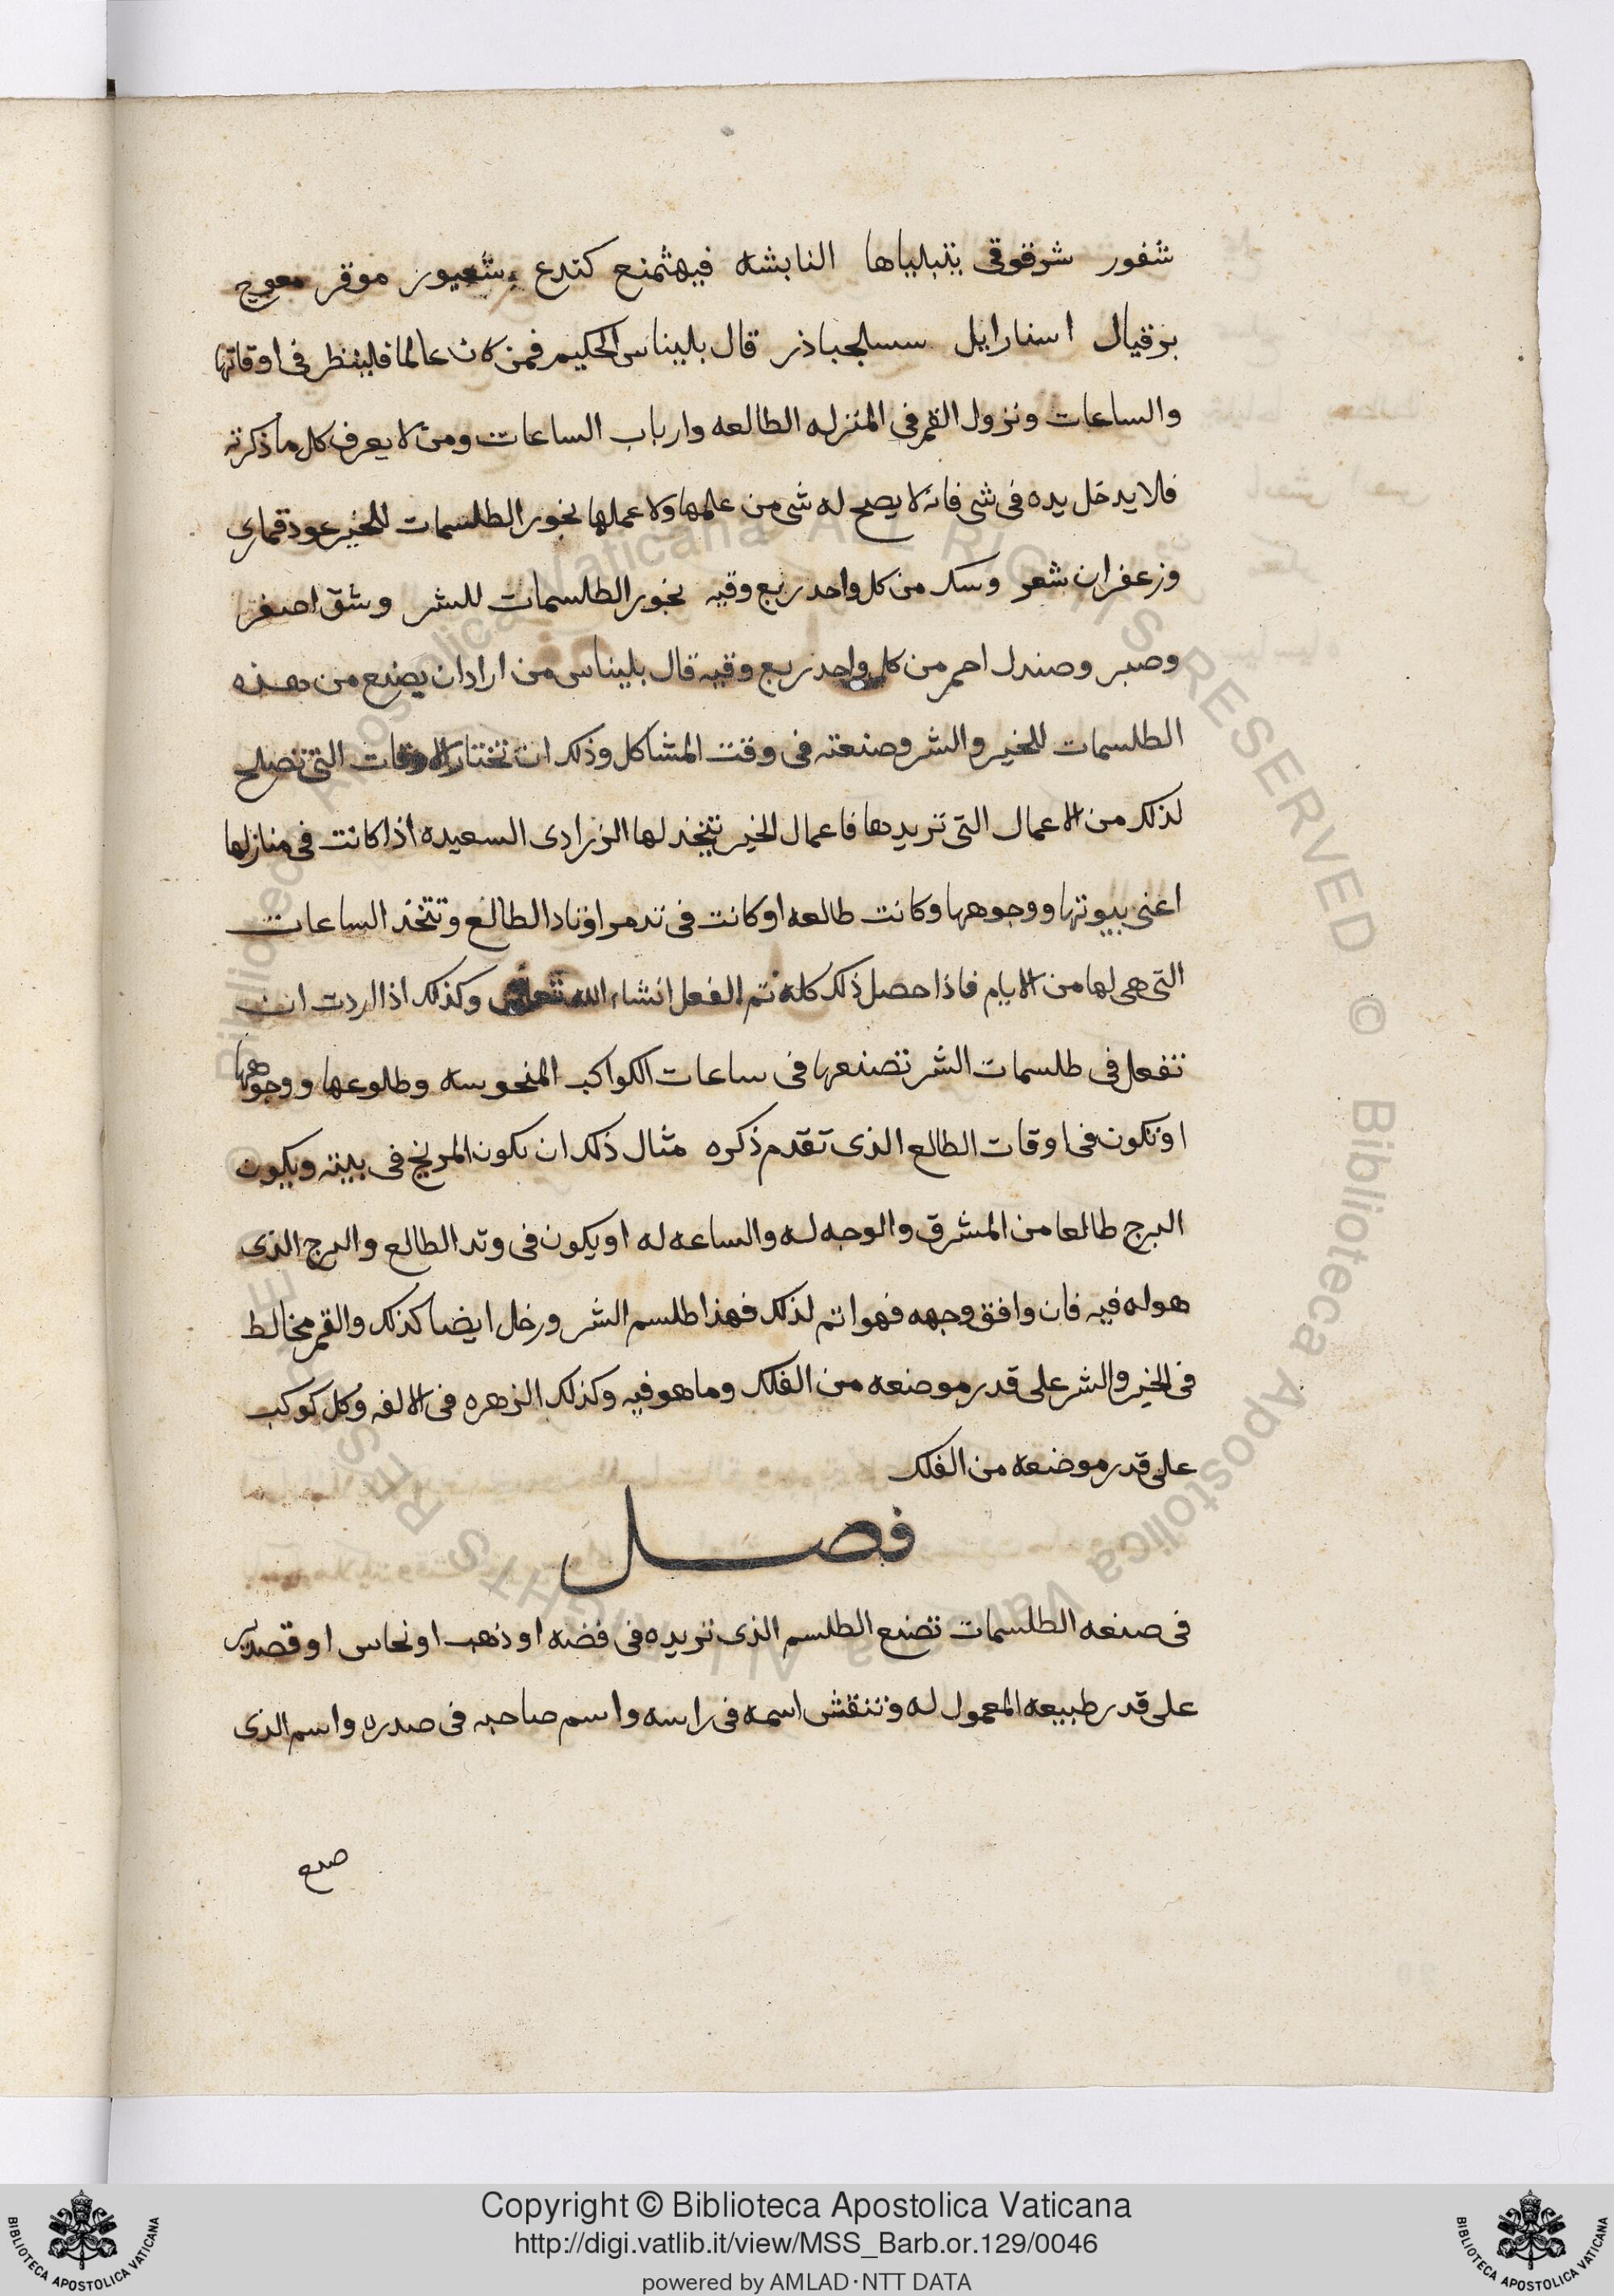 شفور شرقوقى يتبلياها النابشه فيهثمنع كتدع شعيور موقر معوج
برقيال اسنارايل سسلجباذر قال بليناس الحكيم فمن كان عالما فلينظر فى اوقاتها
والساعات ونزول القمر فى المنزله الطالعه وارباب الساعات ومن لا يعرف كل ما ذكرته
فلا يدخل يده فى شى فانه لا يصح له شى من علمها ولا عملها بخور الطلسمات للخير عود قمارى
وزعفران شعر وسك من كل واحد ربع وقيه بخور الطلسمات للشر وشق اصفر
وصبر وصندل احمر من كل واحد ربع وقيه قال بليناس من اراد ان يصنع من هذه
الطلسمات للخير والشر وصنعته فى وقت المشاكل وذلك ان تختار الاوقات التى تصلح
لذلك من الاعمال التى تريدها فاعمال الخير تتخذ لها الزرارى السعيده اذا كانت فى منازلها
اعنى بيوتها ووجوهها وكانت طالعه او كانت فى تدمر اوتاد الطالع وتتخذ الساعات
التى هى لها من الايام فاذا حصل ذلك كله تم الفعل انشاء الله تعالى وكذلك اذا اردت ان
تفعل فى طلسمات الشر تصنعها فى ساعات الكواكب المنحوسه وطلوعها ووجوهها
او تكون فى اوقات الطالع الذى تقدم ذكره مثال ذلك ان يكون المريخ فى بيته ويكون
البرج طالعا من المشرق والوجه له والساعه له او يكون فى وتد الطالع والبرج الذى
هو له فيه فان وافق وجهه فهو اتم لذلك فهذا طلسم الشر وزحل ايضا كذلك والقمر مخالط
فى الخير والشر على قدر موضعه من الفلك وما هو فيه وكذلك الزهره فى الالفه وكل كوكب
على قدر موضعه من الفلك
فصل
فى صنعه الطلسمات تصنع الطلسم الذى تريده فى فضه او ذهب او نحاس او قصدير
على قدر طبيعه المعمول له وتنقش اسمه فى راسه واسم صاحبه فى صدره واسم الذى
صنع
Copyright © Biblioteca Apostolica Vaticana
http://digi.vatlib.it/view/MSS_Barb.or.129/0046
powered by AMLAD·NTT DATA